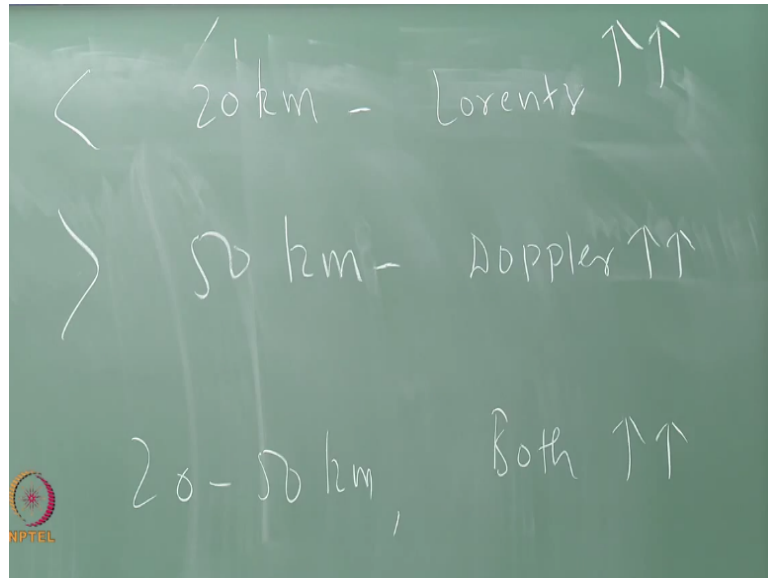 < 20 km - Lorentz ↑↑
> 50 km - Doppler ↑↑
20 - 50 km, Both ↑↑
NPTEL